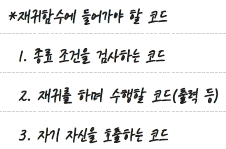 *재귀함수에 들어가야 할 코드
1. 종료 조건을 검사하는 코드
2. 재귀를 하며 수행할 코드(출력 등)
3. 자기 자신을 호출하는 코드